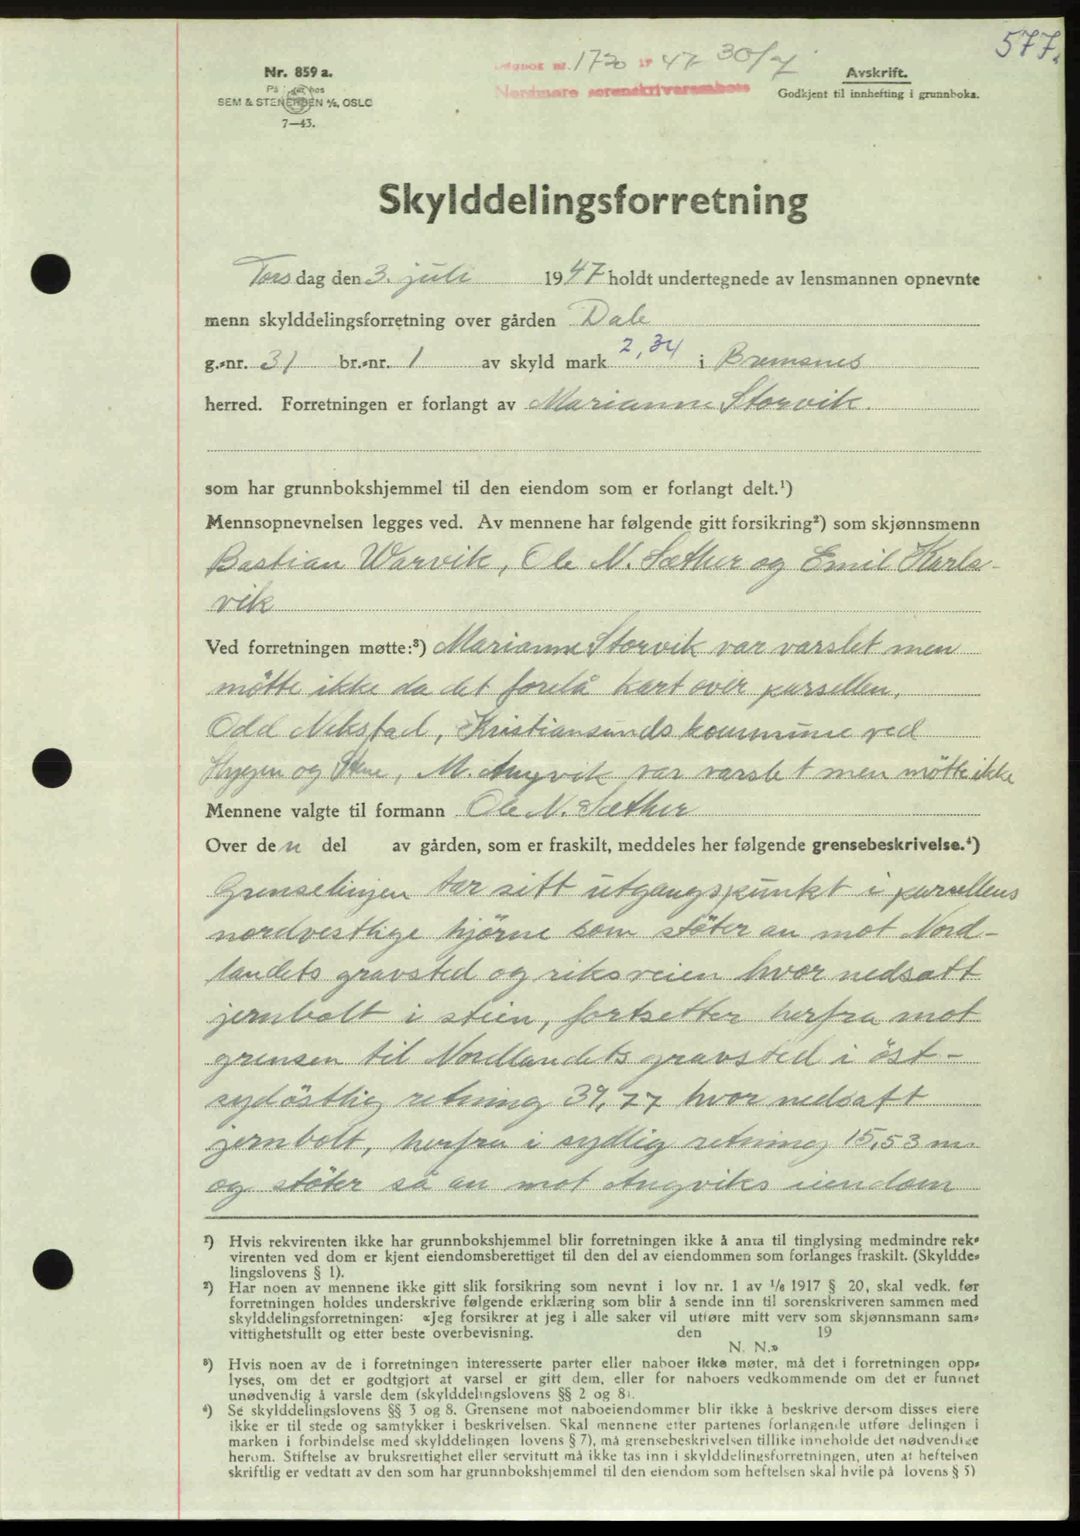 577.
Dagbok nr. 1720 19 47 30/7
Nordmøre sorenskriverembete
Nr. 859 a.
På hos
SEM & STENERSEN A/S, OSLO
7—43.
Avskrift.
Godkjent til innhefting i grunnboka.
Skylddelingsforretning
Torsdag den 3. juli 1947 holdt undertegnede av lensmannen opnevnte
menn skylddelingsforretning over gården Dale
g.-nr. 31 br.-nr. 1 av skyld mark 2,34 i Bremsnes
herred. Forretningen er forlangt av Marianne Storvik.
som har grunnbokshjemmel til den eiendom som er forlangt delt.¹)
Mennsopnevnelsen legges ved. Av mennene har følgende gitt forsikring²) som skjønnsmenn
Bastian Warvik, Ole N. Sæther og Emil Karls-
vik
Ved forretningen møtte:³) Marianne Storvik var varslet men
møtte ikke da det forelå kart over parsellen.
Odd Nekstad, Kristiansunds kommune ved
Hygen og, M. Angvik var varslet men møtte ikke
Mennene valgte til formann Ole N. Sæther
Over den del av gården, som er fraskilt, meddeles her følgende grensebeskrivelse.⁴)
Grenselinjen tar sitt utgangspunkt i parsellens
nordvestlige hjørne som støter an mot Nord-
landets gravsted og riksveien hvor nedsatt
jernbolt i stein, fortsetter herfra mot
grensen til Nordlandets gravsted i öst-
sydöstlig retning 39,77 hvor nedsatt
jernbolt, herfra i sydlig retning 15,53 m.
og støter så an mot Angviks eiendom
¹) Hvis rekvirenten ikke har grunnbokshjemmel blir forretningen ikke å anta til tinglysing medmindre rek-
virenten ved dom er kjent eiendomsberettiget til den del av eiendommen som forlanges fraskilt. (Skyldde-
lingslovens § 1).
²) Har noen av mennene ikke gitt slik forsikring som nevnt i lov nr. 1 av 1/6 1917 § 20, skal vedk. før
forretningen holdes underskrive følgende erklæring som blir å sende inn til sorenskriveren sammen med
skylddelingsforretningen: «Jeg forsikrer at jeg i alle saker vil utføre mitt verv som skjønnsmann sam-
vittighetsfullt og etter beste overbevisning. den 19
N. N.»
³) Hvis noen av de i forretningen interesserte parter eller naboer ikke møter, må det i forretningen opp-
lyses, om det er godtgjort at varsel er gitt dem, eller for naboers vedkommende om det er funnet
unødvendig å varsle dem (skylddelingslovens §§ 2 og 8).
⁴) Se skylddelingslovens §§ 3 og 8. Grensene mot naboeiendommer blir ikke å beskrive dersom disses eiere
ikke er til stede og samtykker i beskrivelsen. Skal mennene etter partenes forlangende utføre delingen i
marken i forbindelse med skylddelingen lovens § 7), må grensebeskrivelsen tillike inneholde det nødvendige
herom. Stiftelse av bruksrettighet eller servitutt må ikke tas inn i skylddelingsforretningen, uten at heftelsen
skriftlig er vedtatt av den som har grunnbokshjemmel til den eiendom som heftelsen skal hvile på lovens § 5)